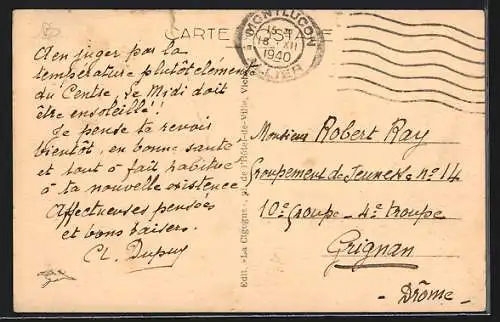 CARTE
MONTLUÇON
18 XII
1940
ALLIER
A en juger par la
température plutôt clémente
du Centre, le Midi doit
être ensoleillé!!
Je pense te revoir
bientôt, en bonne santé
et tout à fait habitué
à ta nouvelle existence
Affectueuses pensées
et bons baisers.
Cl. Dupuy
Edit. "La Cigogne", de l'Hôtel-de-Ville, Vichy
Monsieur Robert Ray
Groupement de Jeunesse nº 14
10e Groupe - 4e troupe
Grignan
- Drôme -